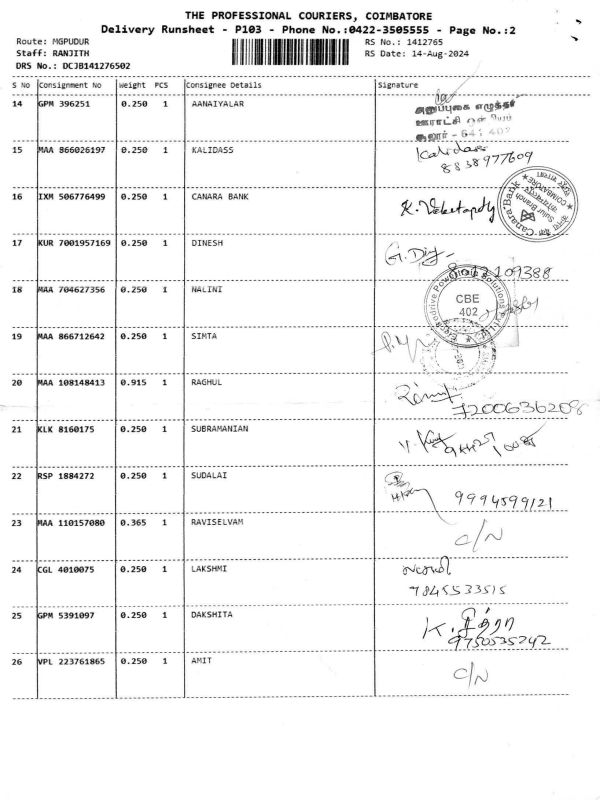 THE PROFESSIONAL COURIERS, COIMBATORE
Delivery Runsheet - P103 - Phone No.:0422-3505555 - Page No.:2
Route: MGPUDUR RS No.: 1412765
Staff: RANJITH RS Date: 14-Aug-2024
DRS No.: DCJB141276502
S No Consignment No Weight PCS Consignee Details Signature
14 GPM 396251 0.250 1 AANAIYALAR
ஊராட்சி
சூலூர் - 641 402
15 MAA 866026197 0.250 1 KALIDASS Kalidass
8838977609
16 IXM 506776499 0.250 1 CANARA BANK
Canara Bank
Sulur Branch
COIMBATORE
17 KUR 7001957169 0.250 1 DINESH
109388
18 MAA 704627356 0.250 1 NALINI
CBE
402
19 MAA 866712642 0.250 1 SIMTA
20 MAA 108148413 0.915 1 RAGHUL
7200636208
21 KLK 8160175 0.250 1 SUBRAMANIAN
22 RSP 1884272 0.250 1 SUDALAI
9994599121
23 MAA 110157080 0.365 1 RAVISELVAM C/N
24 CGL 4010075 0.250 1 LAKSHMI
7845533515
25 GPM 5391097 0.250 1 DAKSHITA
9750535242
26 VPL 223761865 0.250 1 AMIT C/N